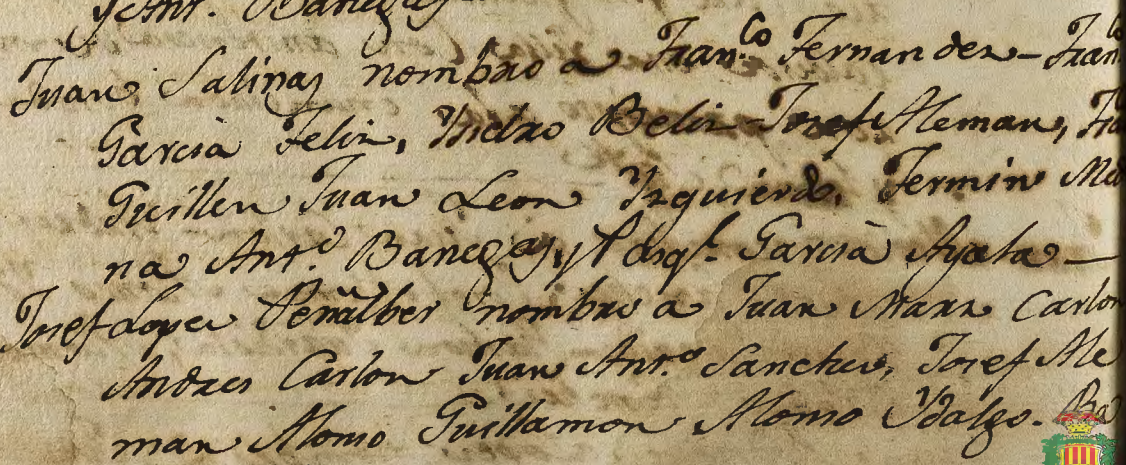 y Ant.º Banegas
Juan Salinas nombro a Fran.co Fernandez – Fran.co
Garcia Feliz, Ysidro Beliz – Josef Aleman,
Guillen Juan Leon Yzquierdo. Fermin Me
na Ant.º Banegas, y Pasql. Garcià Ayala —
Josef Lopez Peñalber nombro a Juan Marz Carlon
Andres Carlon Juan Ant.º Sanchez, Josef Ale
man Alonso Guillamon Alonso Ydalgo.